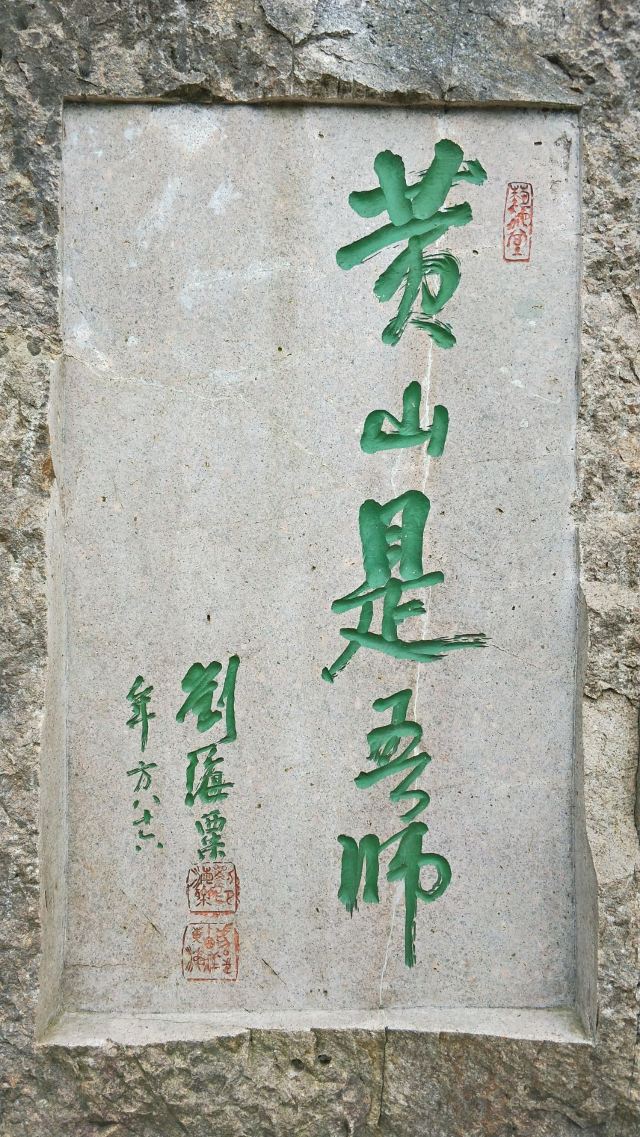 黄山是吾师
劉海粟
年方八十六